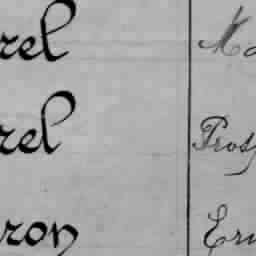 rel Ma
rel Prosp
ron Ern